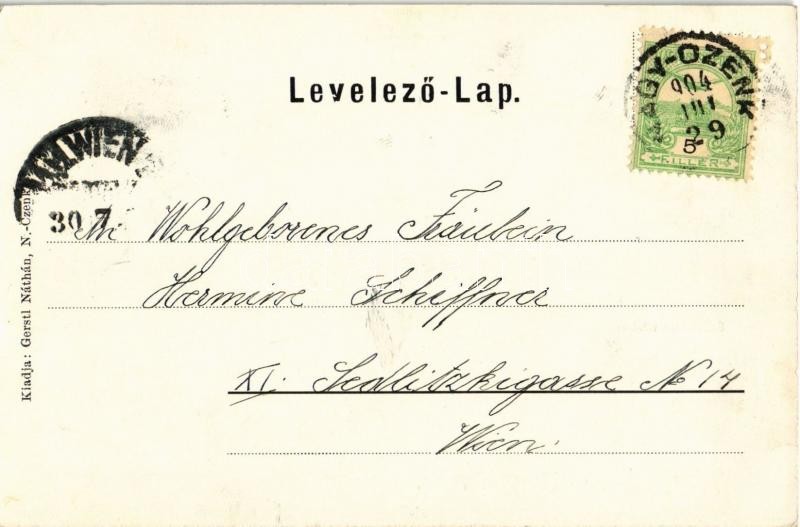 Levelező-Lap.
NAGY-CZENK
904
JUL
29
5 FILLÉR
WIEN
30. 7
An Wohlgeborenes Fräulein
Hermine Schiffner
XI. Sedlitzkigasse № 14
Wien.
Kiadja: Gerstl Náthán, N.-Czenk